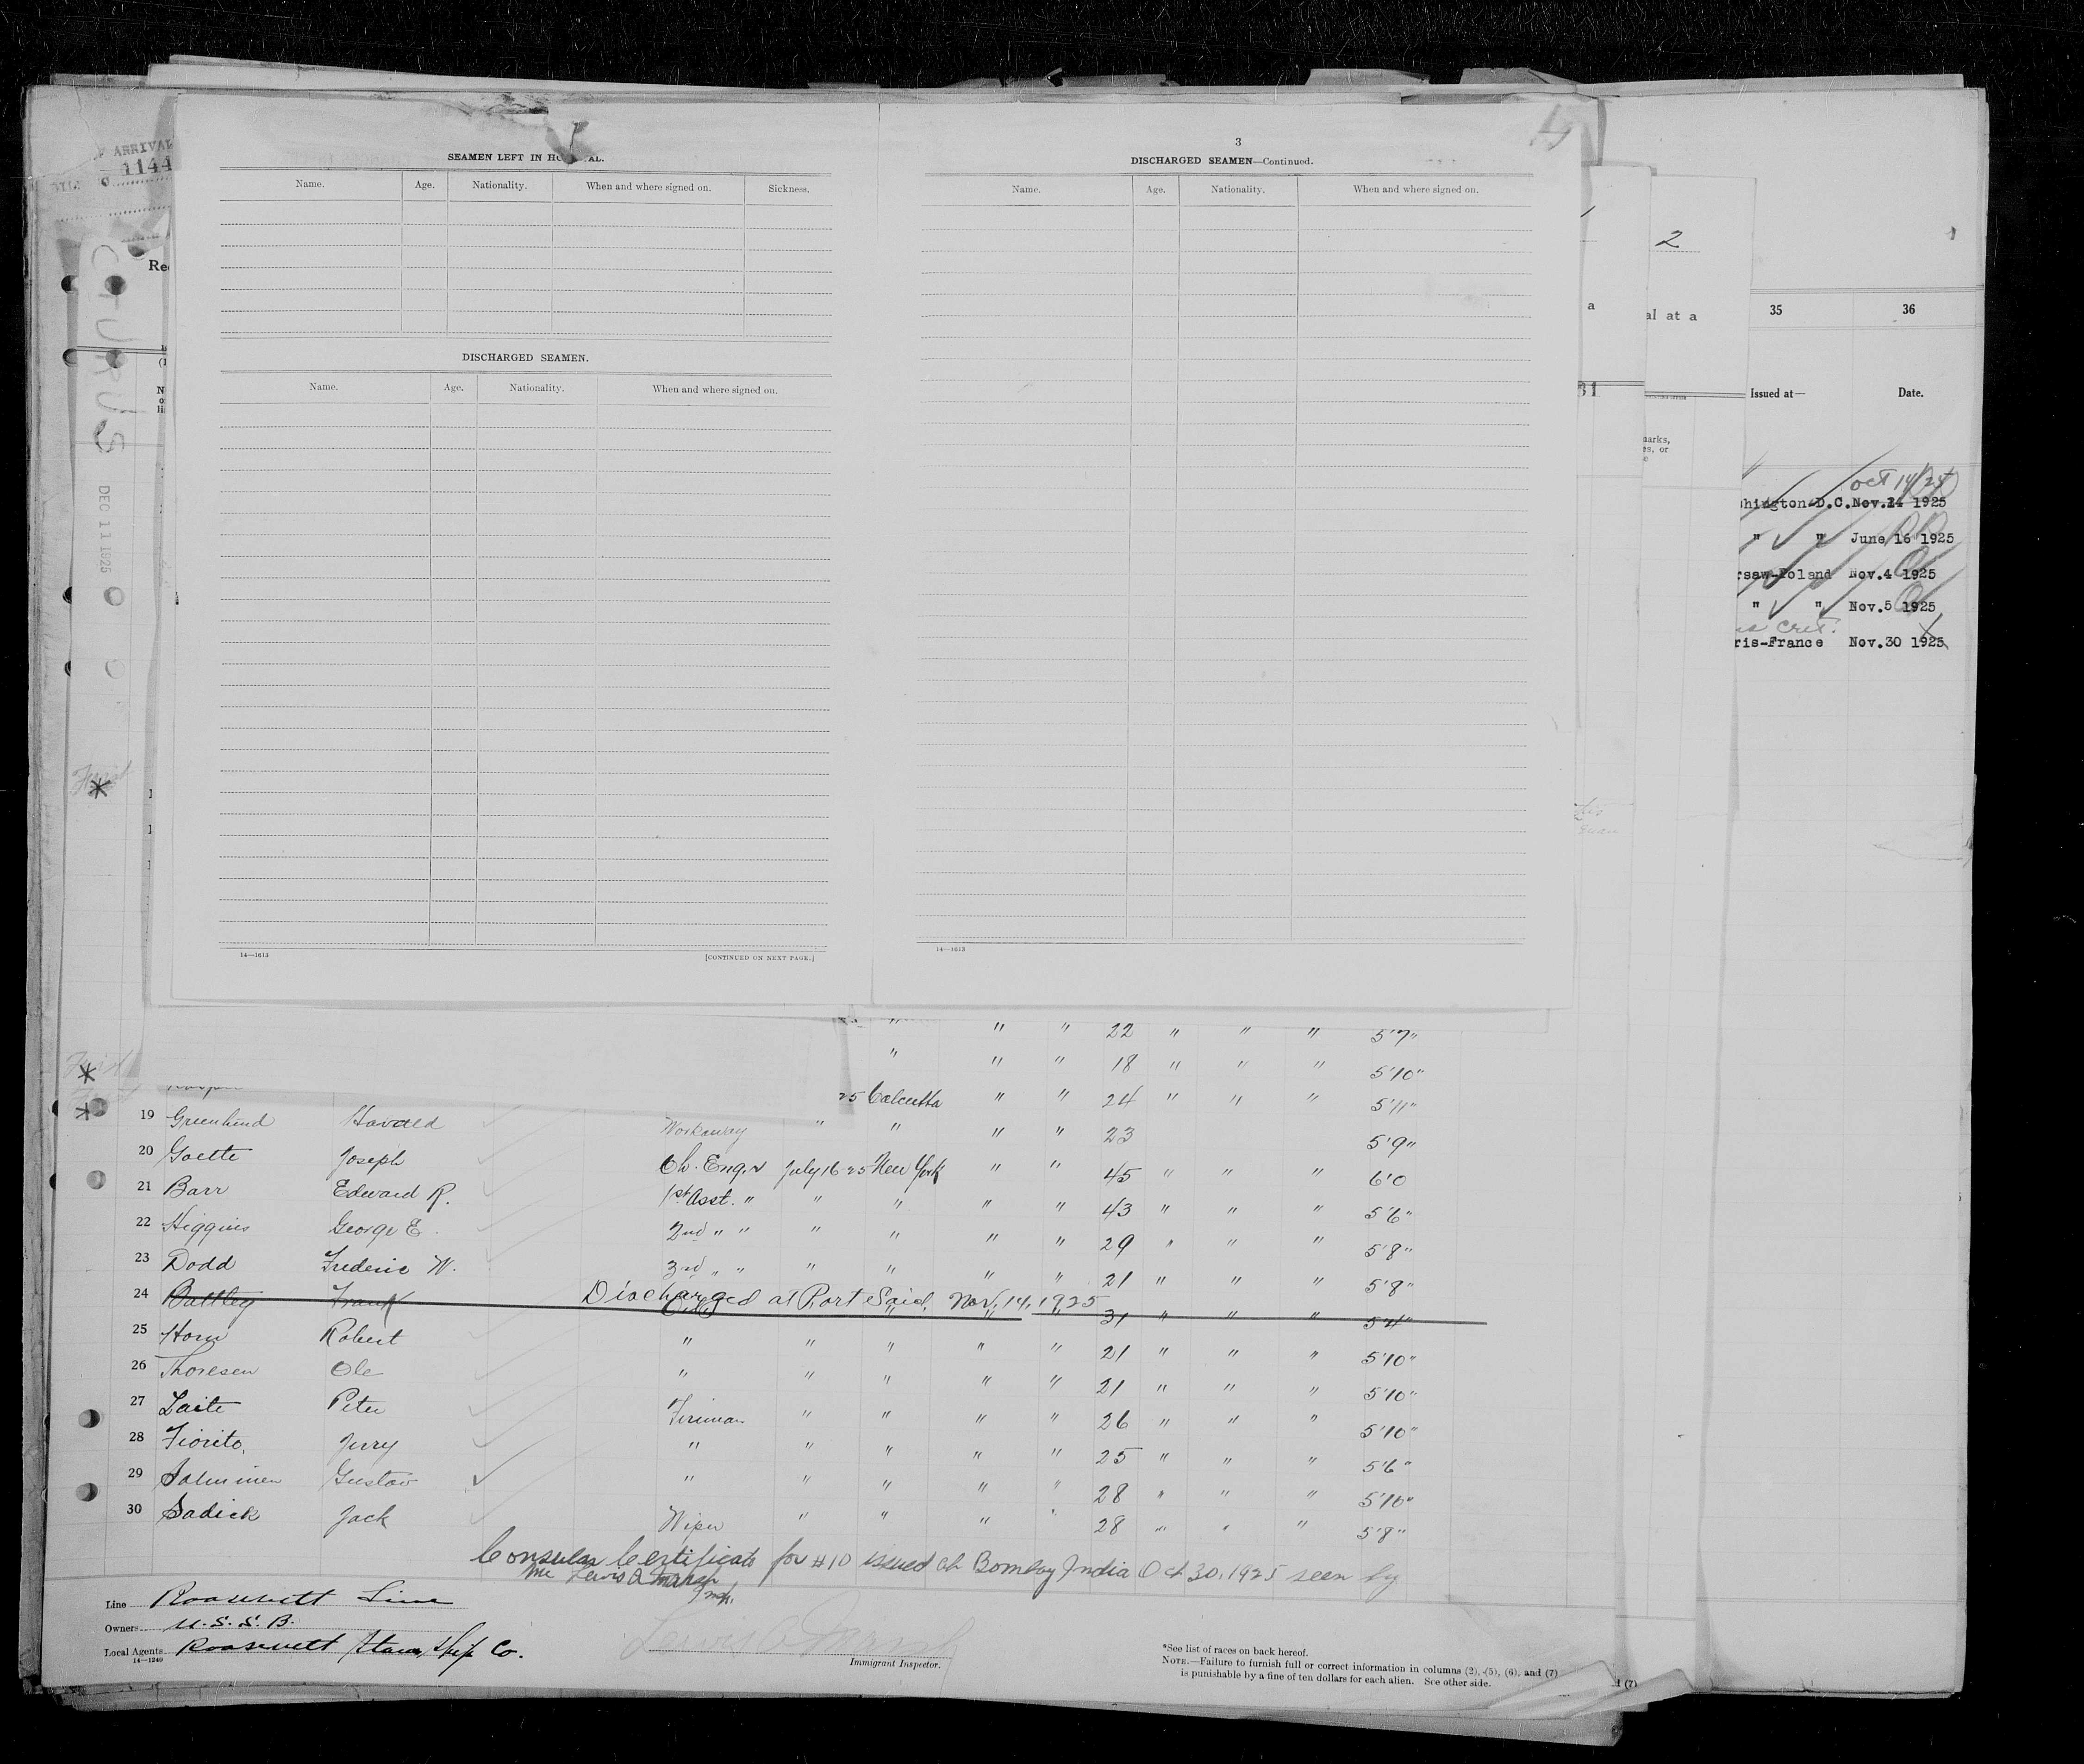 ARRIVAL
1144
CITURUS
DEC 11 1925
SEAMEN LEFT IN HO AL.
Name. Age. Nationality. When and where signed on. Sickness.
DISCHARGED SEAMEN.
Name. Age. Nationality. When and where signed on.
14—1613 [CONTINUED ON NEXT PAGE.]
3
DISCHARGED SEAMEN—Continued.
Name. Age. Nationality. When and where signed on.
14—1613
4
a
31
2
al at a
arks,
es, or
35 36
Issued at— Date.
Oct 14/25
hington D.C. Nov.24 1925
" " June 16 1925
rsaw-Poland Nov.4 1925
" " Nov.5 1925
Cret.
ris-France Nov.30 1925
" " " 22 " " " 5'7"
" " " 18 " " " 5'10"
25 Calcutta " " 24 " " " 5'11"
19 Greenhind Harald Workaway " " " " 23 5'9"
20 Goette Joseph Ch. Eng.r July 16-25 New York " " 45 " " " 6'0
21 Barr Edward R. 1st Asst. " " " " " 43 " " " 5'6"
22 Higgins George E. 2nd " " " " " " 29 " " " 5'8"
23 Dodd Frederic W. 3rd " " " " " " 21 " " " 5'8"
24 Battley Frank Discharged at Port Said, Nov, 14, 1925 31 " " " 5'4"
25 Horn Robert " " " " " 21 " " " 5'10"
26 Thoresen Ole " " " " " 21 " " " 5'10"
27 Laite Peter Fireman " " " " 26 " " " 5'10"
28 Fiorito, Jerry " " " " " 25 " " " 5'6"
29 Salminen Gustav " " " " " 28 " " " 5'10"
30 Sadick Jack Wiper " " " " 28 " " " 5'8"
Consular Certificate for #10 issued at Bombay India Oct 30, 1925 seen by
me Lewis A Marsh
Insp.
Line Roosevelt Line
Owners U.S.S.B.
Local Agents Roosevelt Steam Ship Co.
14—1240
Immigrant Inspector.
*See list of races on back hereof.
NOTE.—Failure to furnish full or correct information in columns (2), (5), (6), and (7)
is punishable by a fine of ten dollars for each alien. See other side.
d (7)